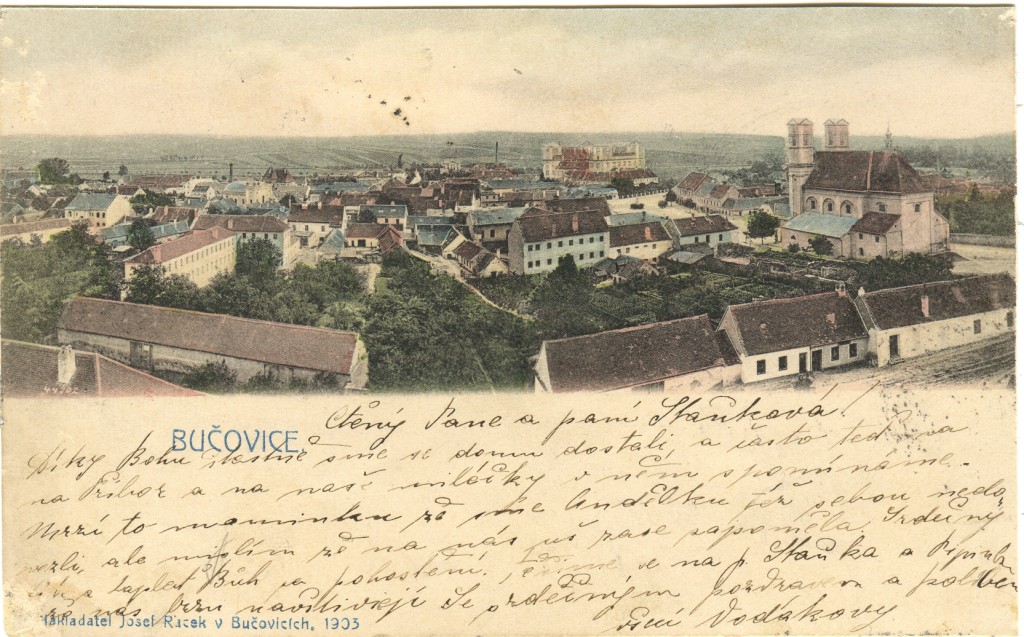 Ctěný Pane a paní Staňková!
BUČOVICE.
Díky Bohu šťastně sme se domu dostali, a často teď na
na Příbor a na naše miláčky v něm spomínáme.
Mrzí to maminku že sme Andělku též sebou nedo-
vezli, ale myslím že na nás už zase zapoměla. Srdečný
zaplať Bůh za pohostění. Těšíme se na p. Staňka a Pepinka
že nás brzu navštívějí Se srdečným pozdravem a políbením
Vodákovy
Nakladatel Josef Racek v Bučovicích, 1903